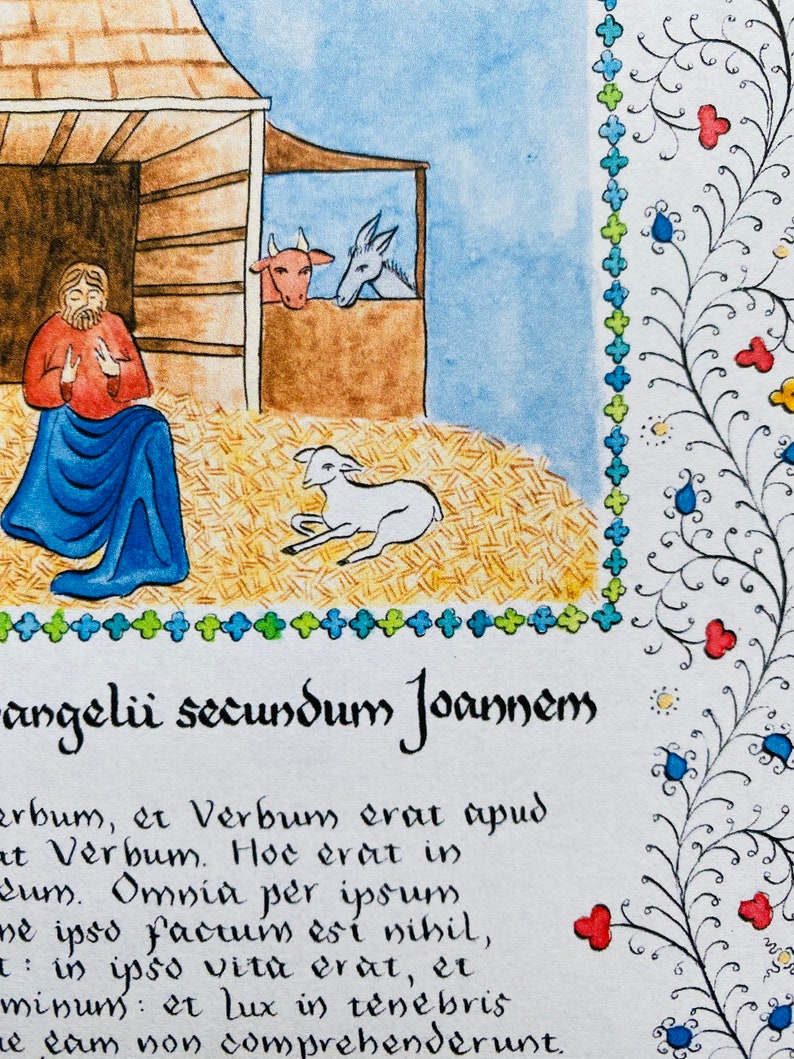 angelii secundum Joannem
erbum, et Verbum erat apud
at Verbum. Hoc erat in
eum. Omnia per ipsum
ne ipso factum est nihil,
t: in ipso vita erat, et
minum: et lux in tenebris
e eam non comprehenderunt.